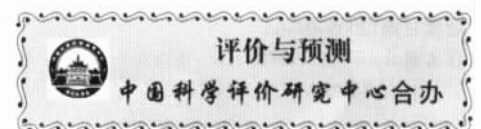 评价与预测
中国科学评价研究中心合办